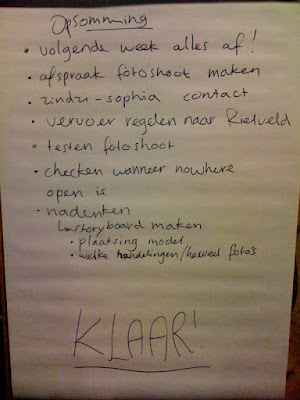 Opsomming
• volgende week alles af!
• afspraak fotoshoot maken
• zindzi - sophia contact
• vervoer regelen naar Rietveld
• testen fotoshoot
• checken wanneer nowhere
open is
• nadenken
↳ storyboard maken
• plaatsing model
• welke handelingen/hoeveel foto's
KLAAR!